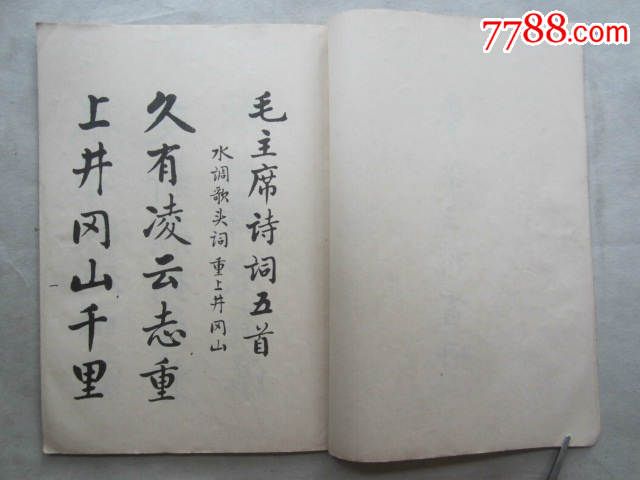 毛主席诗词五首
水调歌头词 重上井冈山
久有凌云志重
上井冈山千里
一
7788.com